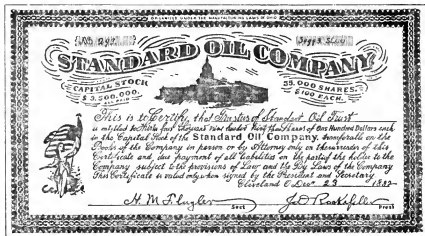 ORGANIZED UNDER THE MANUFACTURING LAWS OF OHIO
STANDARD OIL COMPANY
CAPITAL STOCK
$3,500,000.
35,000 SHARES.
$100 EACH.
This is to Certify, that Trustees of Standard Oil Trust
is entitled to Thirty four Thousand Nine hundred Shares of One Hundred Dollars each
in the Capital Stock of the Standard Oil Company, transferable on the
Books of the Company in person or by Attorney only on the surrender of this
Certificate and due payment of all liabilities on the part of the holder to the
Company subject to the provisions of Law and the By Laws of the Company
This Certificate is valid only when signed by the President and Secretary
Cleveland O Dec 23 1882
H. M. Flagler Sect
J. D. Rockefeller Prest